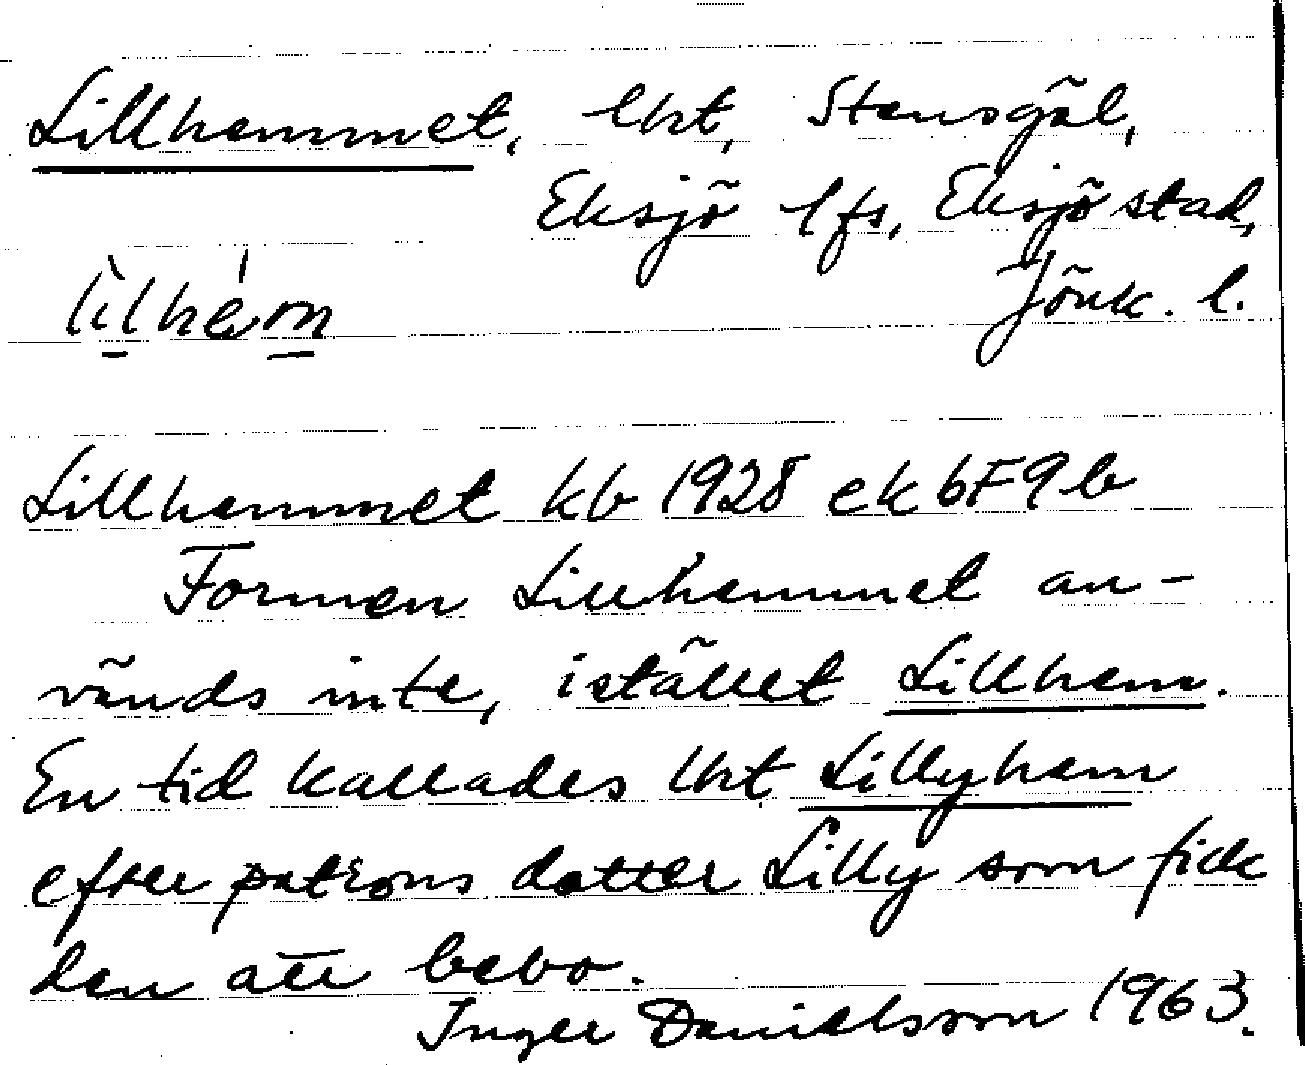 Lillhemmet, lht, Stensgäl,
Eksjö lfs, Eksjö stad,
Jönk. l.
Lillhemmet kb 1928 ek bF9b
Formen Lillhemmet an-
vänds inte, istället Lillhem.
En tid kallades lht Lillyhem
efter patrons dotter Lilly som fick
den att bebo.
Inger Danielsson 1963.